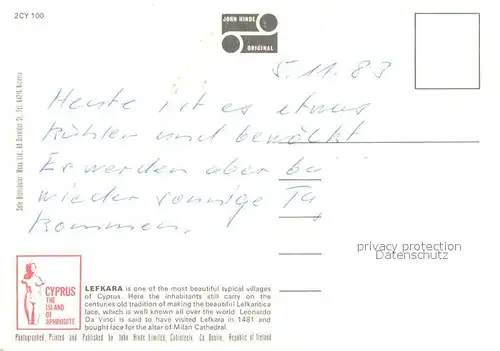 2CY 100
JOHN HINDE
ORIGINAL
5.11.83
Heute ist es etwas
kühler und bewölkt
Es werden aber ba
wieder sonnige Ta
kommen.
privacy protection
Datenschutz
CYPRUS
THE
ISLAND
OF
APHRODITE
LEFKARA is one of the most beautiful typical villages
of Cyprus. Here the inhabitants still carry on the
centuries old tradition of making the beautiful Lefkaritica
lace, which is well known all over the world. Leonardo
Da Vinci is said to have visited Lefkara in 1481 and
bought lace for the altar of Milan Cathedral.
Photographed, Printed and Published by John Hinde Limited, Cabinteely, Co. Dublin, Republic of Ireland
Sole Distributor
Ltd.
Nicosia